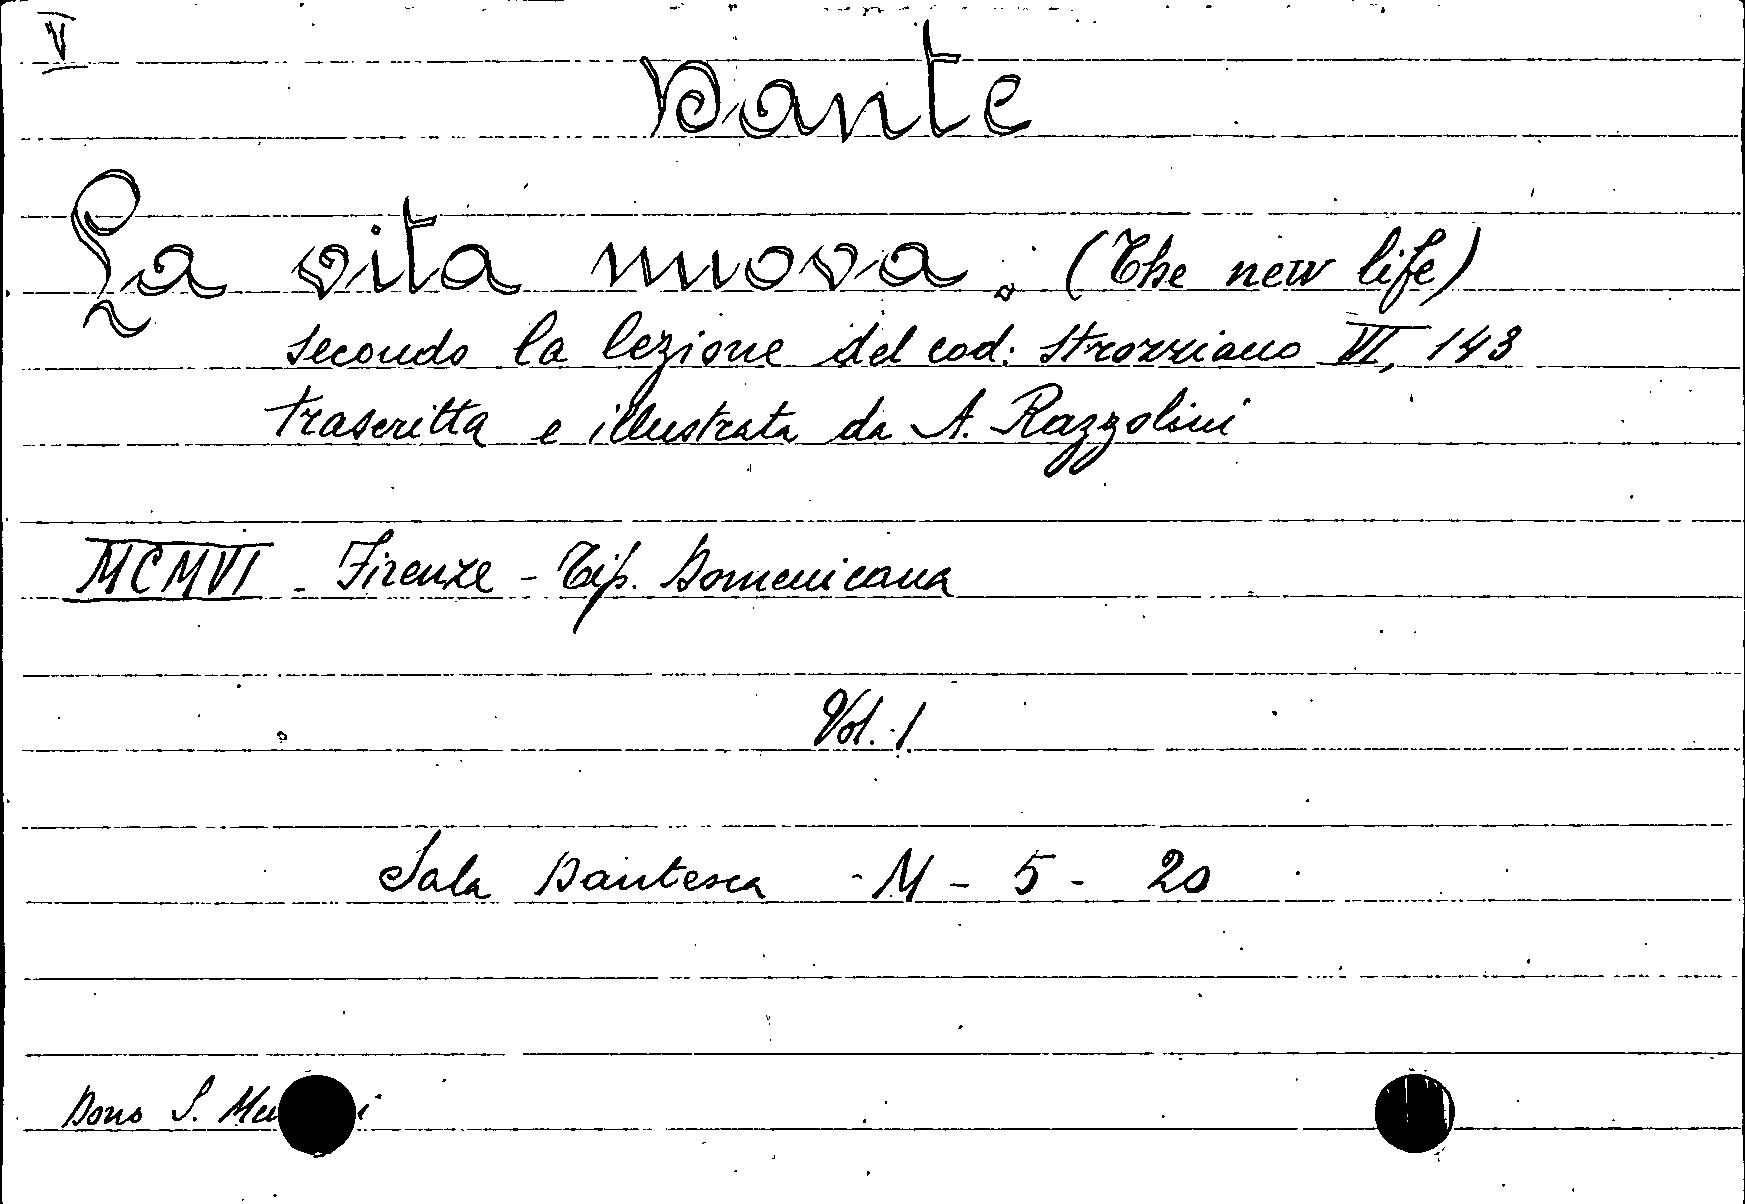 V
Dante
La vita nuova. (The new life)
secondo la lezione del cod: strozziano VI, 143
trascritta e illustrata da A. Razzolini
MCMVI - Firenze - Tip. Domenicana
Vol. 1
Sala Dantesca - M - 5 - 20
Dono S.